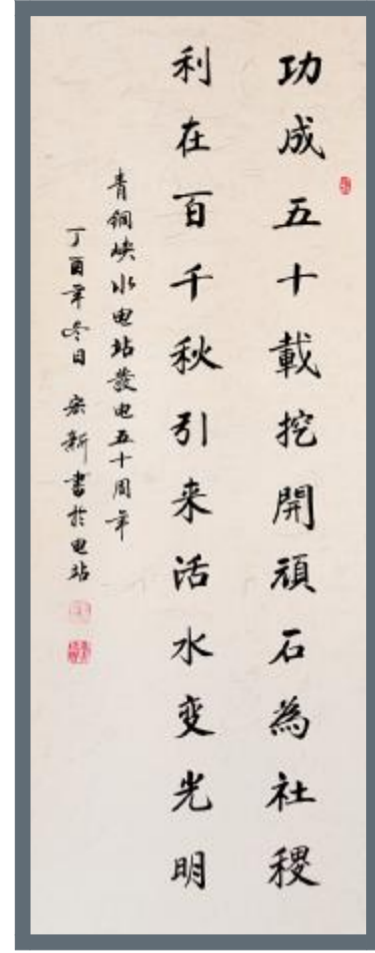 功成五十載挖開頑石為社稷
利在百千秋引来活水变光明
青铜峡水电站發电五十周年
丁酉年冬日 宏新書於电站